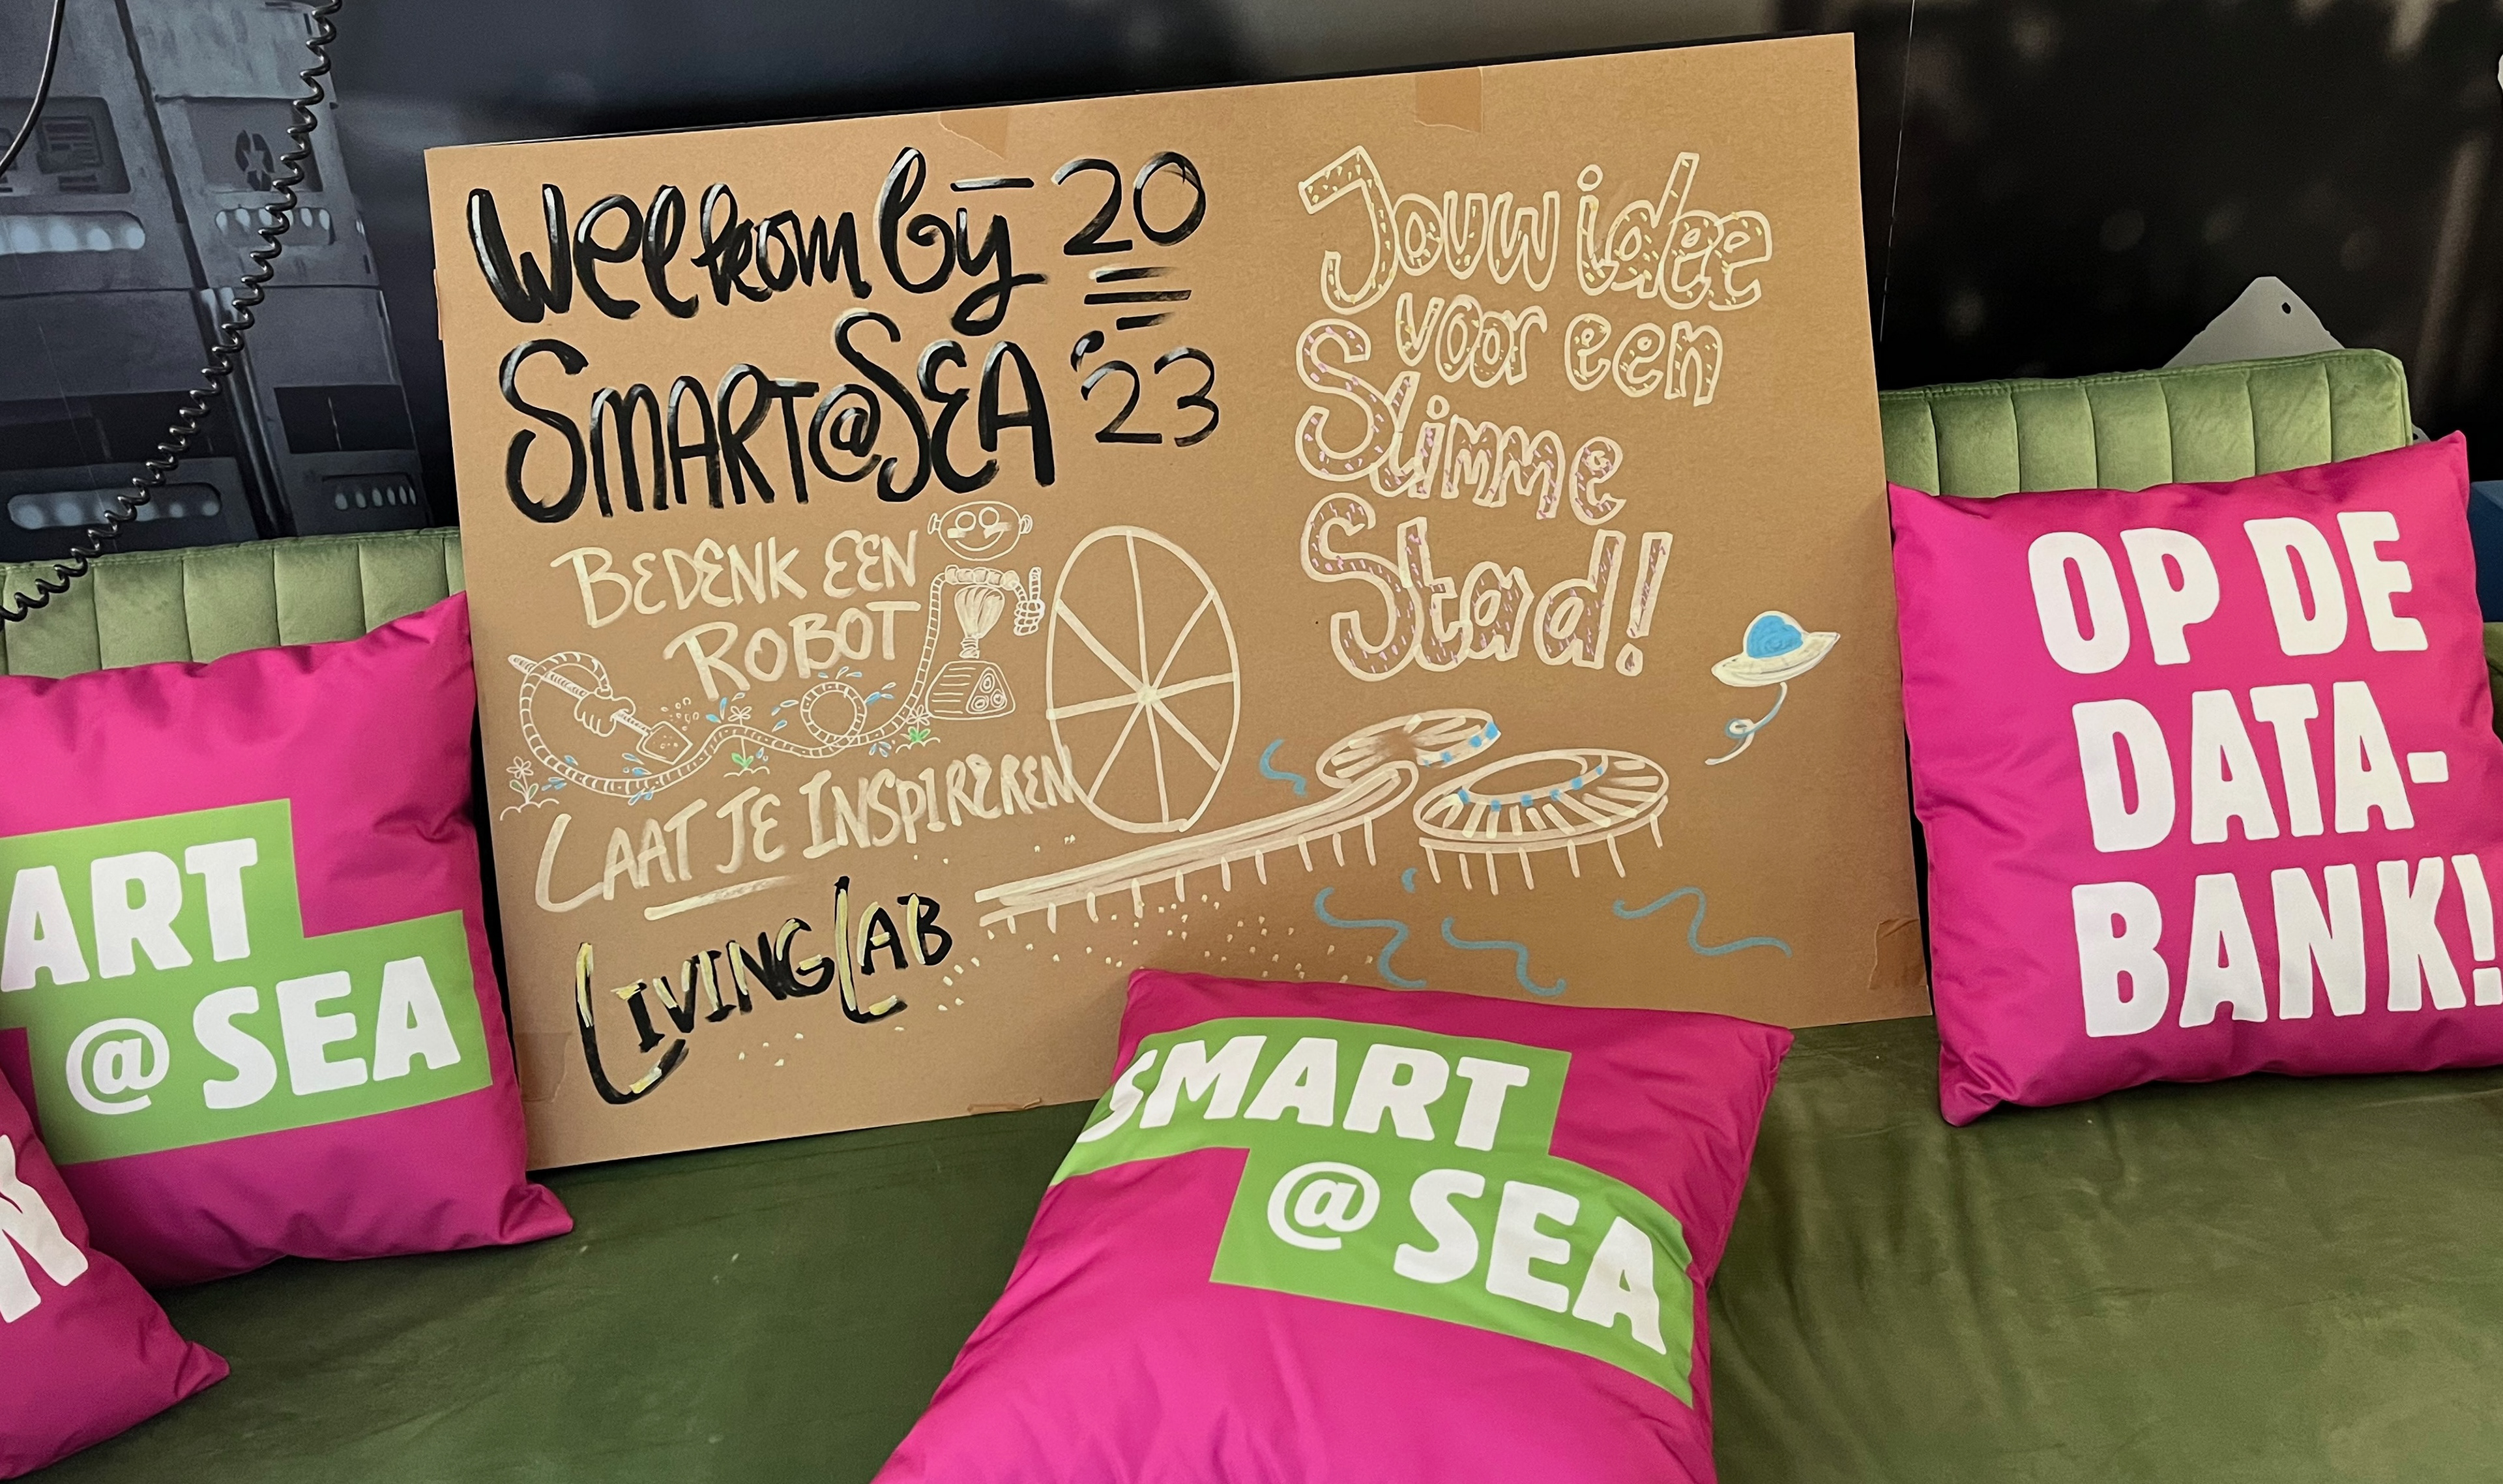 Welkom by 20
SMART@SEA '23
BEDENK EEN
ROBOT
LAAT JE INSPIREREN
LIVING LAB
Jouw idee
voor een
Slimme
Stad!
ART
@SEA
N
SMART
@SEA
OP DE
DATA-
BANK!